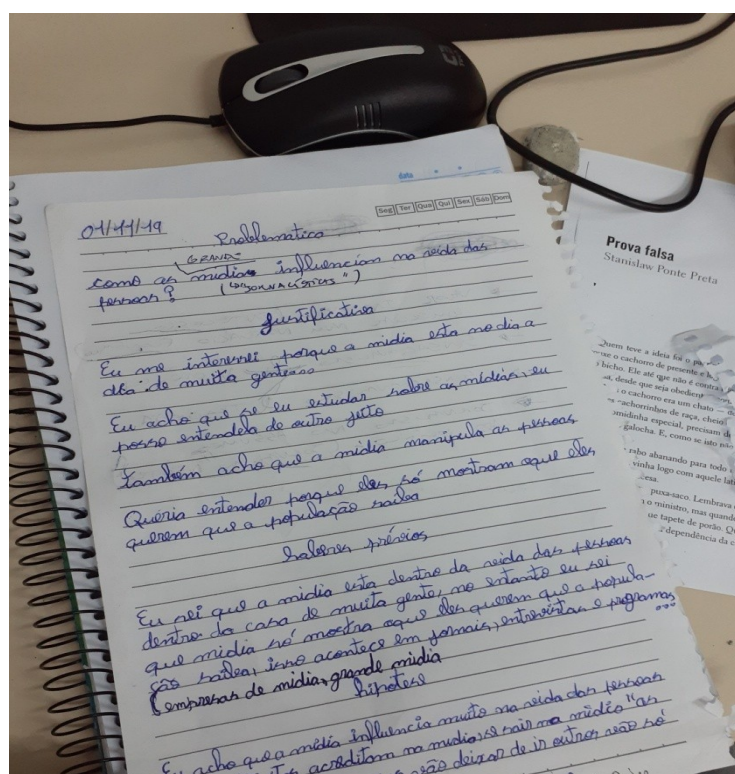 data
Seg Ter Qua Qui Sex Sáb Dom
01/11/19
Problemática
GRANDE
como as mídias influenciam na vida das
pessoas? ("JORNALÍSTICAS")
Justificativa
Eu me interessei porque a midia esta no dia a
dia de muita gente...
Eu acho que se eu estudar sobre as mídias, eu
posso entendela de outro jeito
também acho que a midia manipula as pessoas
Queria entender porque eles só mostram oque eles
querem que a população saiba
Saberes prévios
Eu sei que a midia esta dentro da vida das pessoas
dentro da casa de muita gente, no entanto eu sei
que midia só mostra oque eles querem que a popula-
ção saiba, isso acontece em jornais, entrevistas e programas
(empresas de mídia, grande mídia ...
hipótese
Eu acho que a mídia influencia muito na vida das pessoas
acreditam na midia se sair na mídia "as
vão deixar de ir outros vão só
Prova falsa
Stanislaw Ponte Preta
Quem teve a ideia foi o
o cachorro de presente e
bicho. Ele até que não é contra
desde que seja obediente
o cachorro era um chato
cachorrinhos de raça, cheio
midinha especial, precisam
galocha. E, como se isto
rabo abanando para todo
vinha logo com aquele
puxa-saco. Lembrava
o ministro, mas quando
tapete de porão.
dependência da